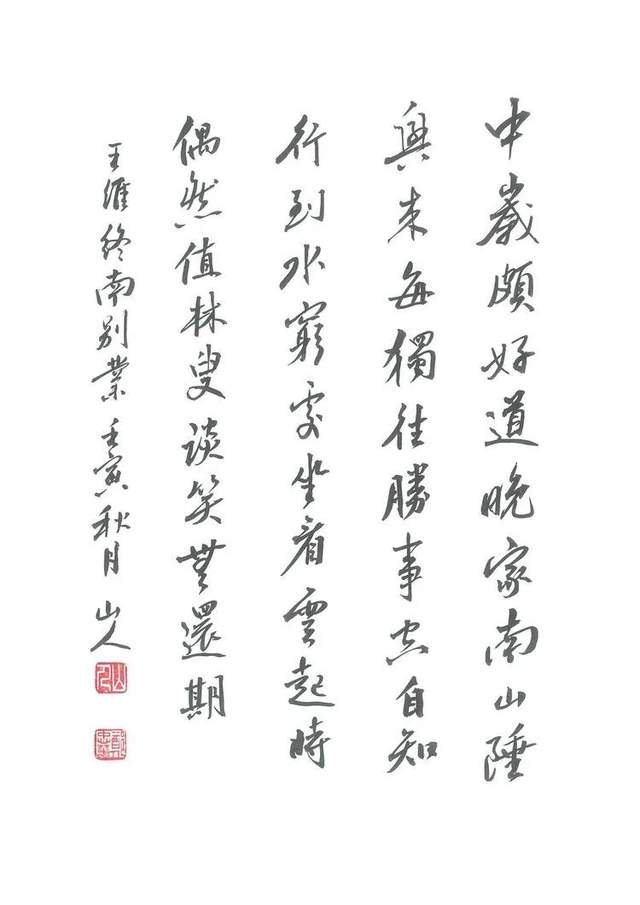 中歲頗好道晚家南山陲
興来每獨往勝事空自知
行到水窮處坐看雲起時
偶然值林叟談笑無還期
王維終南別業壬寅秋月山人
山人